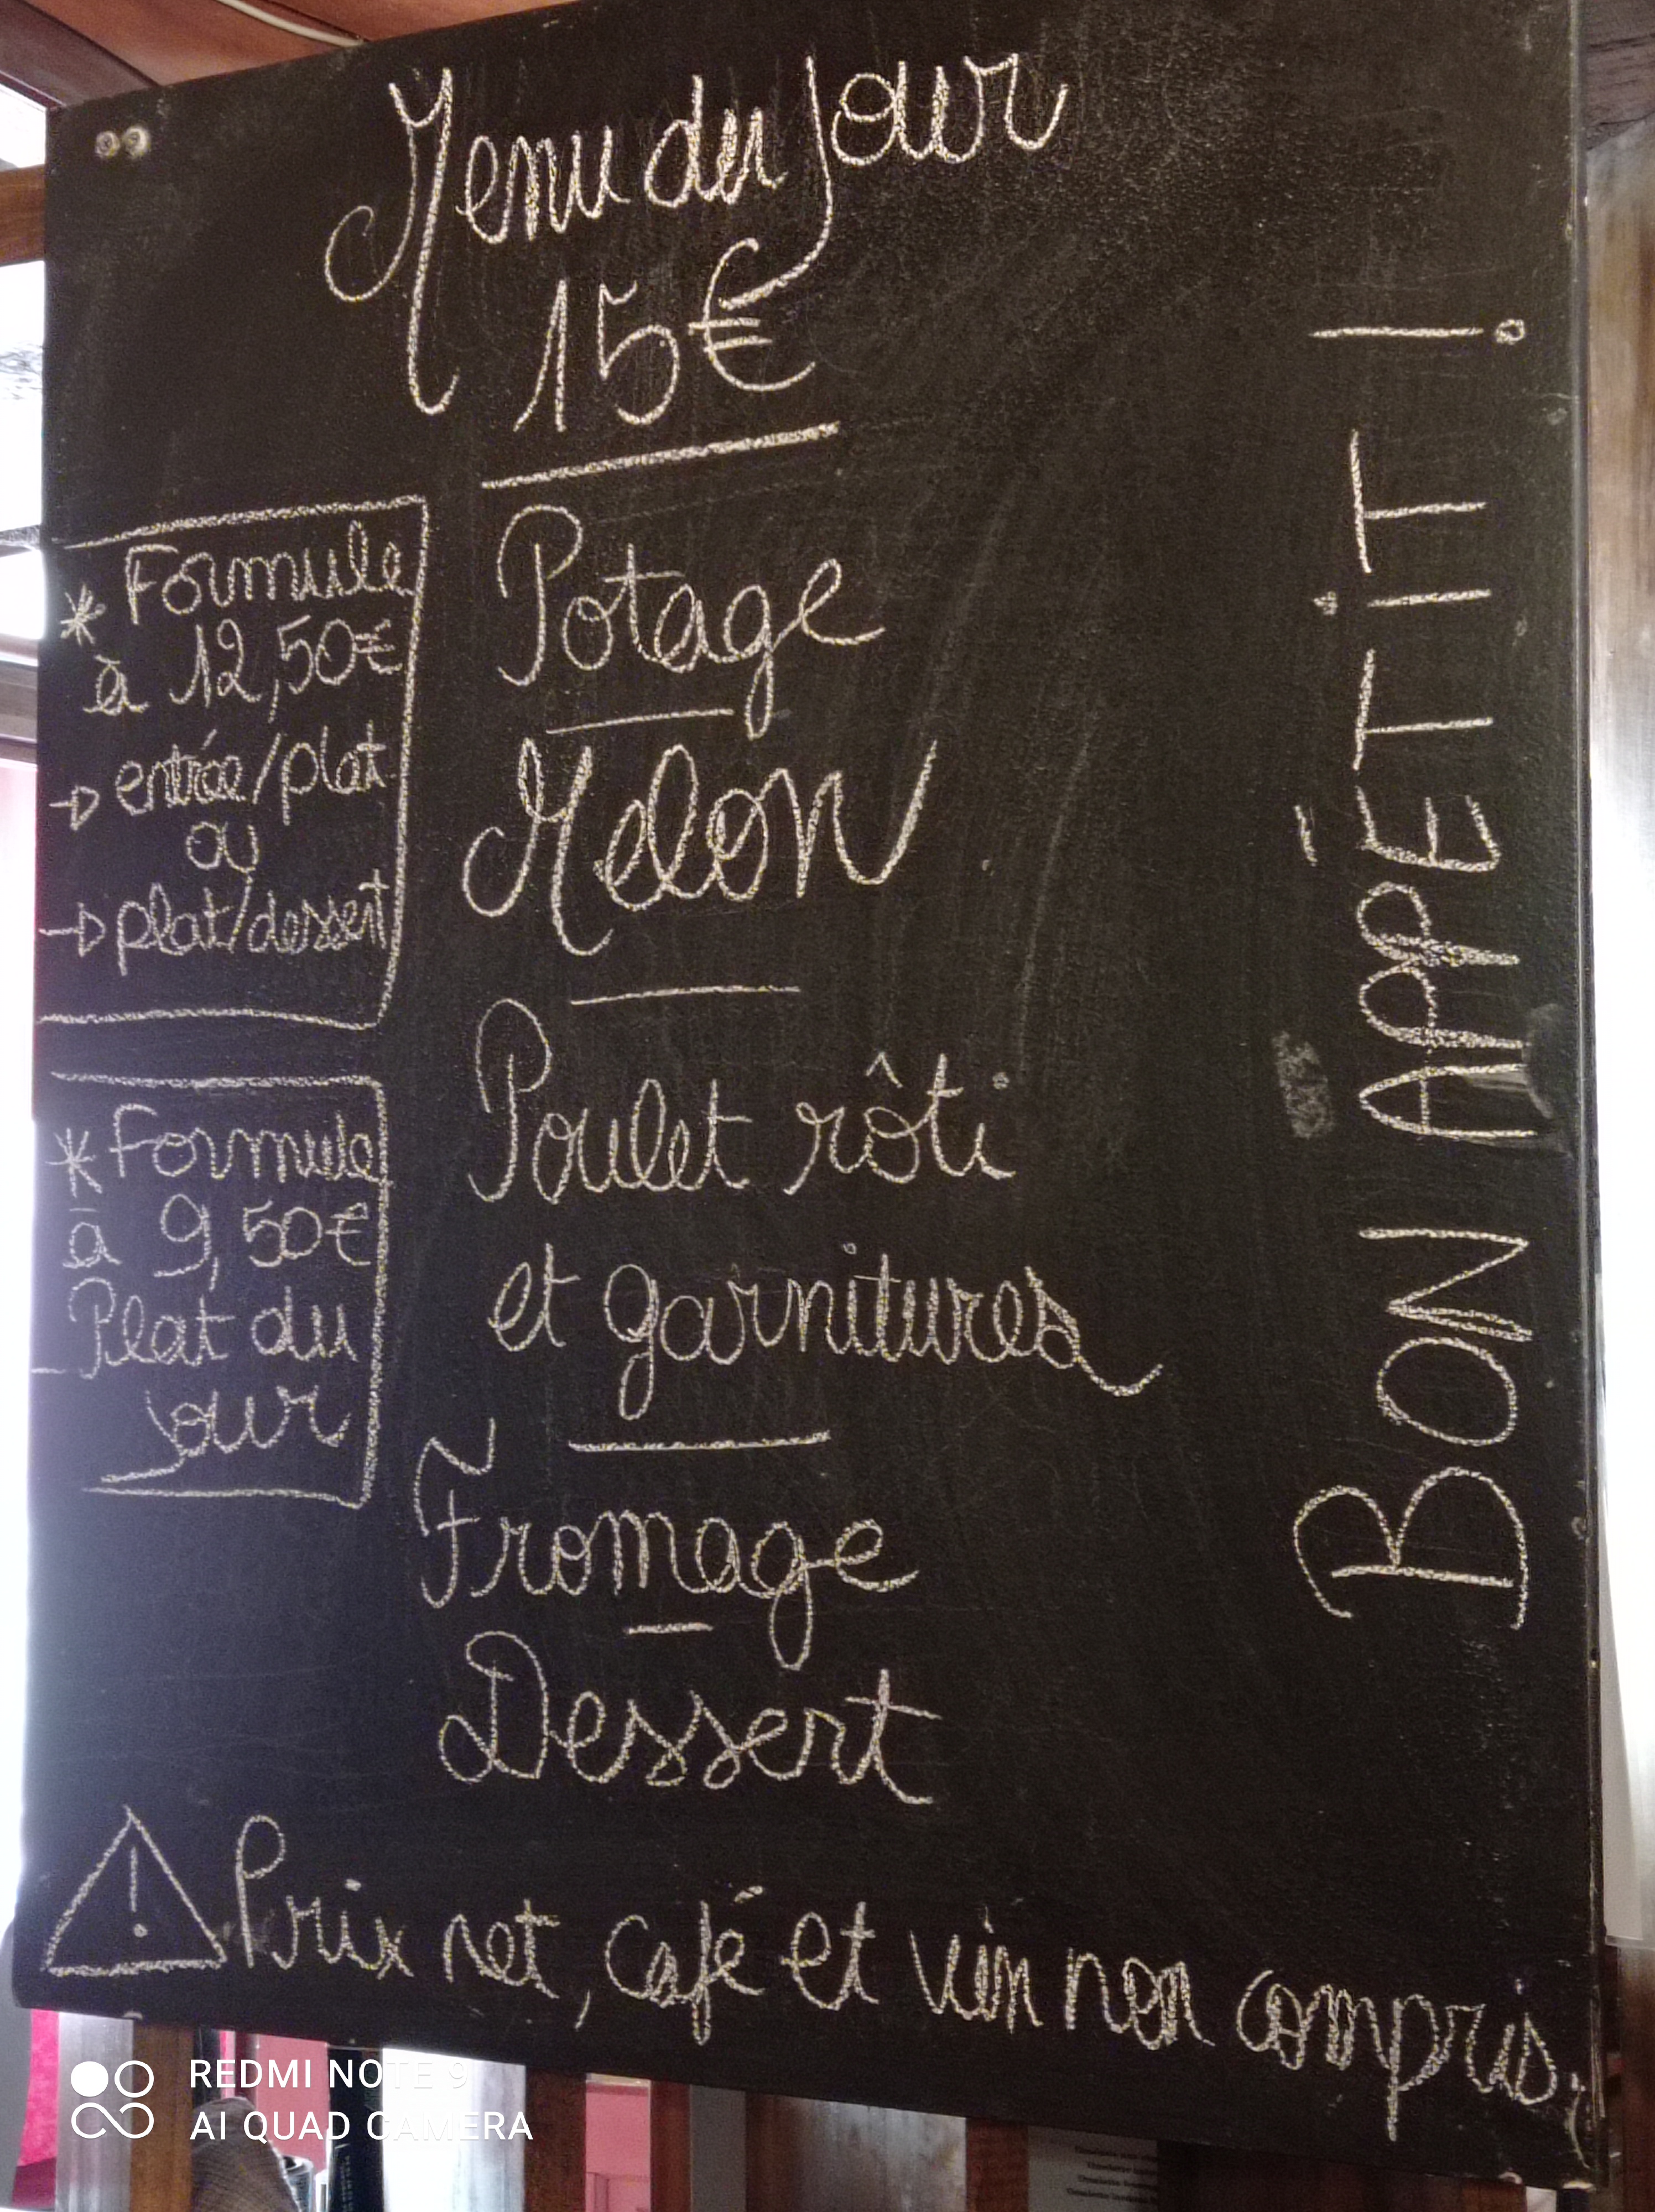 Menu du jour
15€
* Formule
à 12,50€
→ entrée/plat
ou
→ plat/dessert
* Formule
à 9,50€
Plat du
jour
Potage
Melon
Poulet rôti
et garnitures
Fromage
Dessert
BON APPÉTIT !
Prix net, café et vin non compris.
REDMI NOTE 9
AI QUAD CAMERA